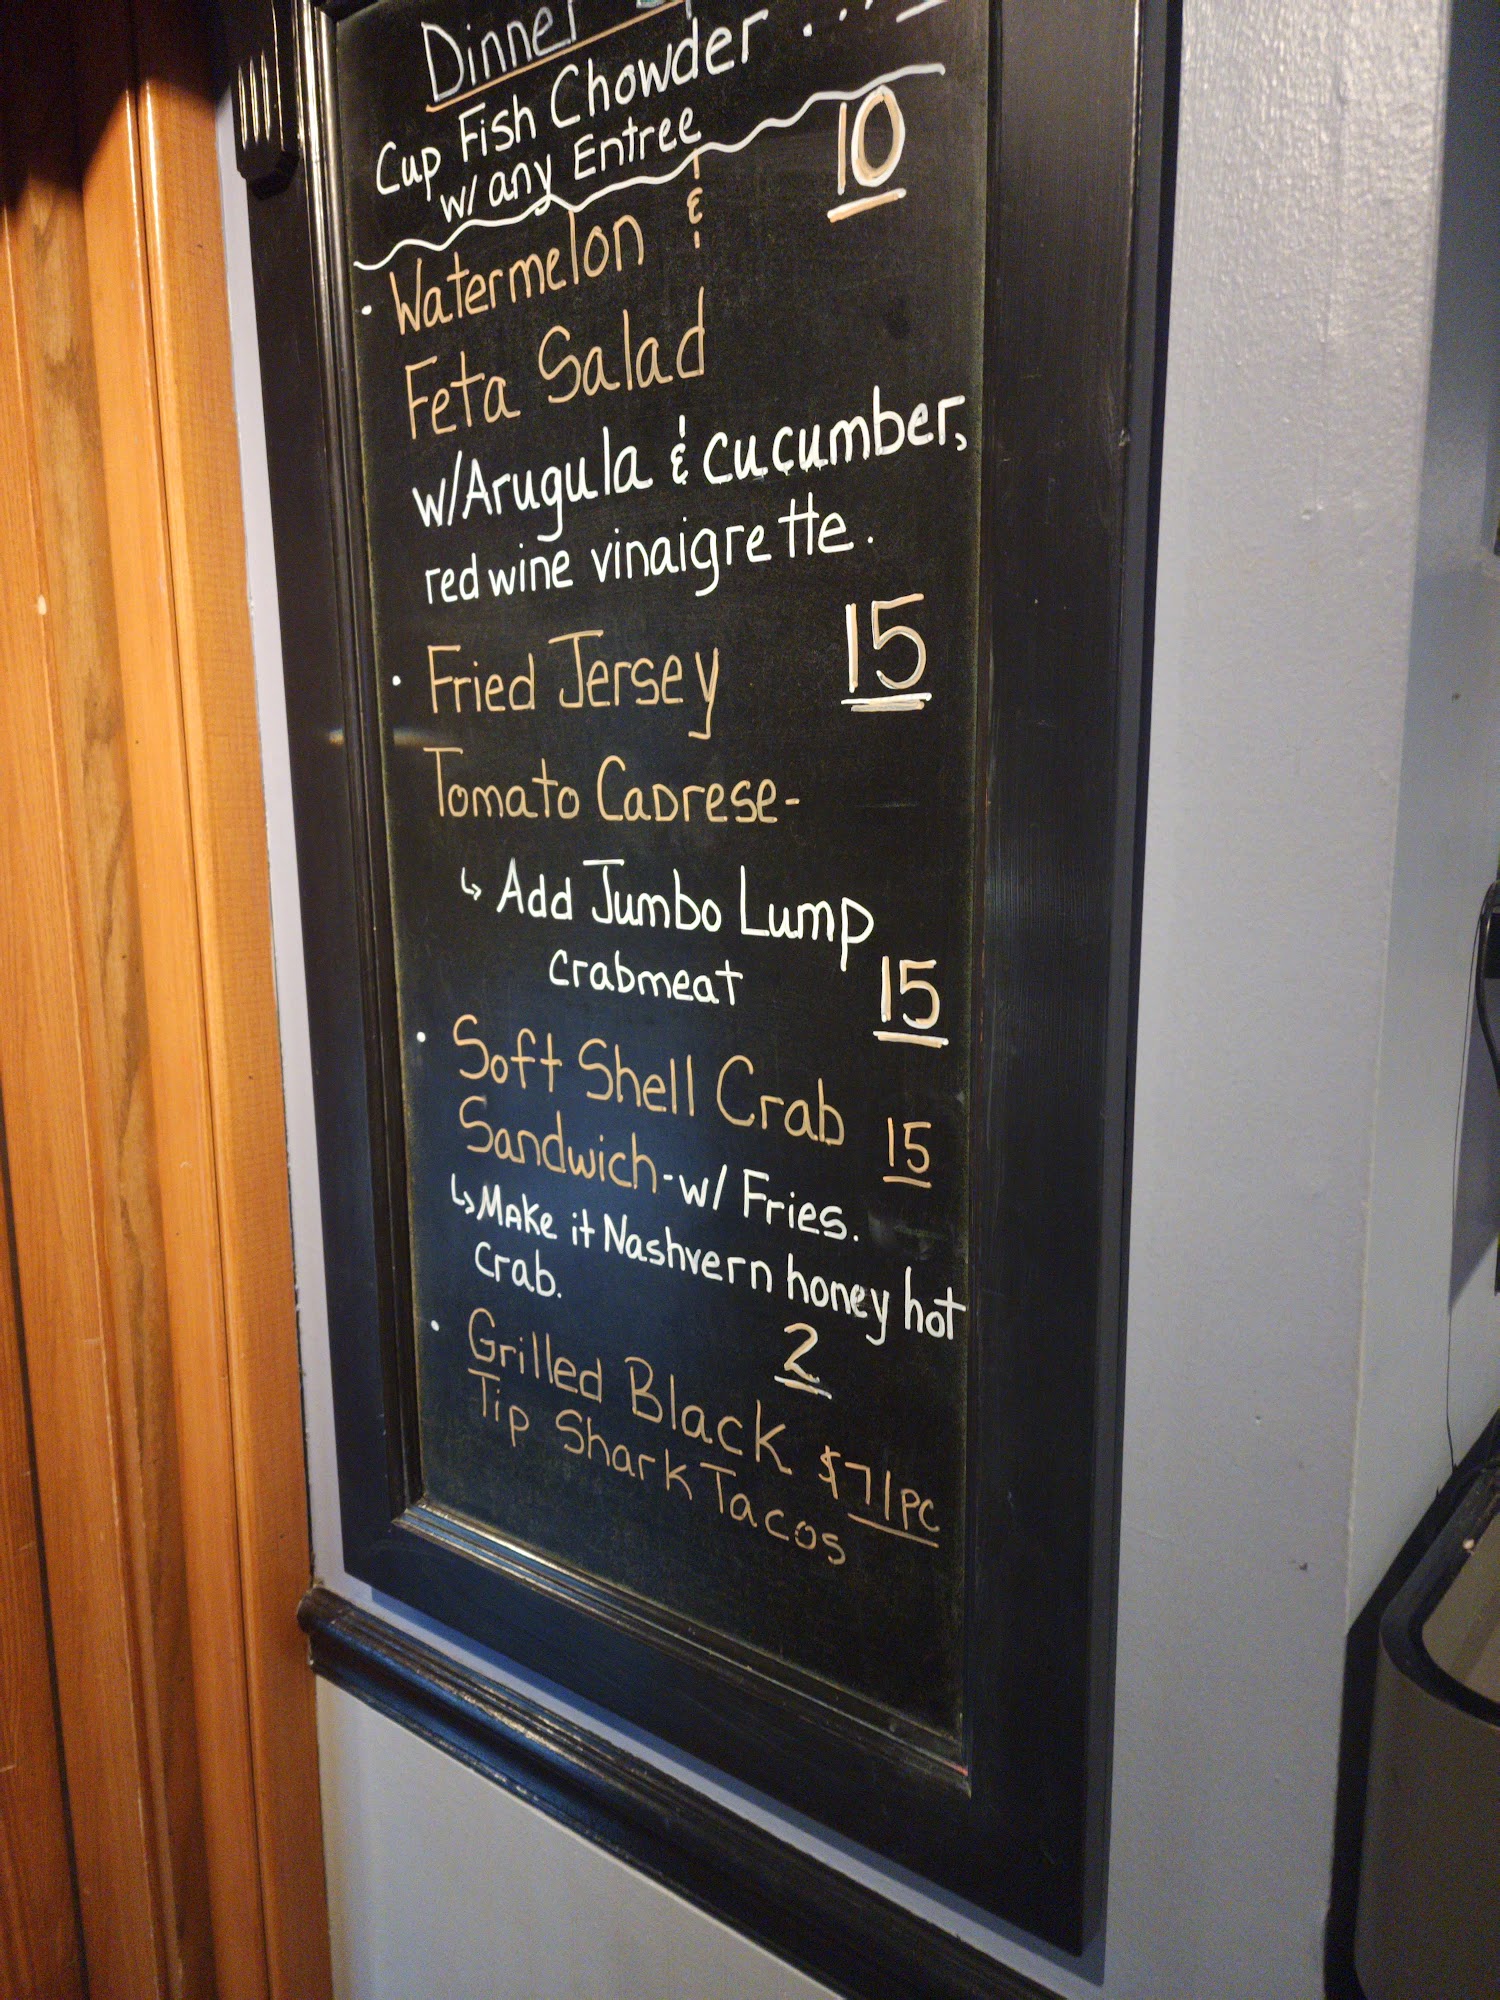 Dinner
Cup Fish Chowder ...
w/ any Entree
• Watermelon & 10
Feta Salad
w/Arugula & cucumber,
red wine vinaigrette.
• Fried Jersey 15
Tomato Caprese-
↳ Add Jumbo Lump
crabmeat 15
• Soft Shell Crab 15
Sandwich - w/ Fries.
↳ Make it Nashvern honey hot
crab. 2
• Grilled Black $7/pc
Tip Shark Tacos